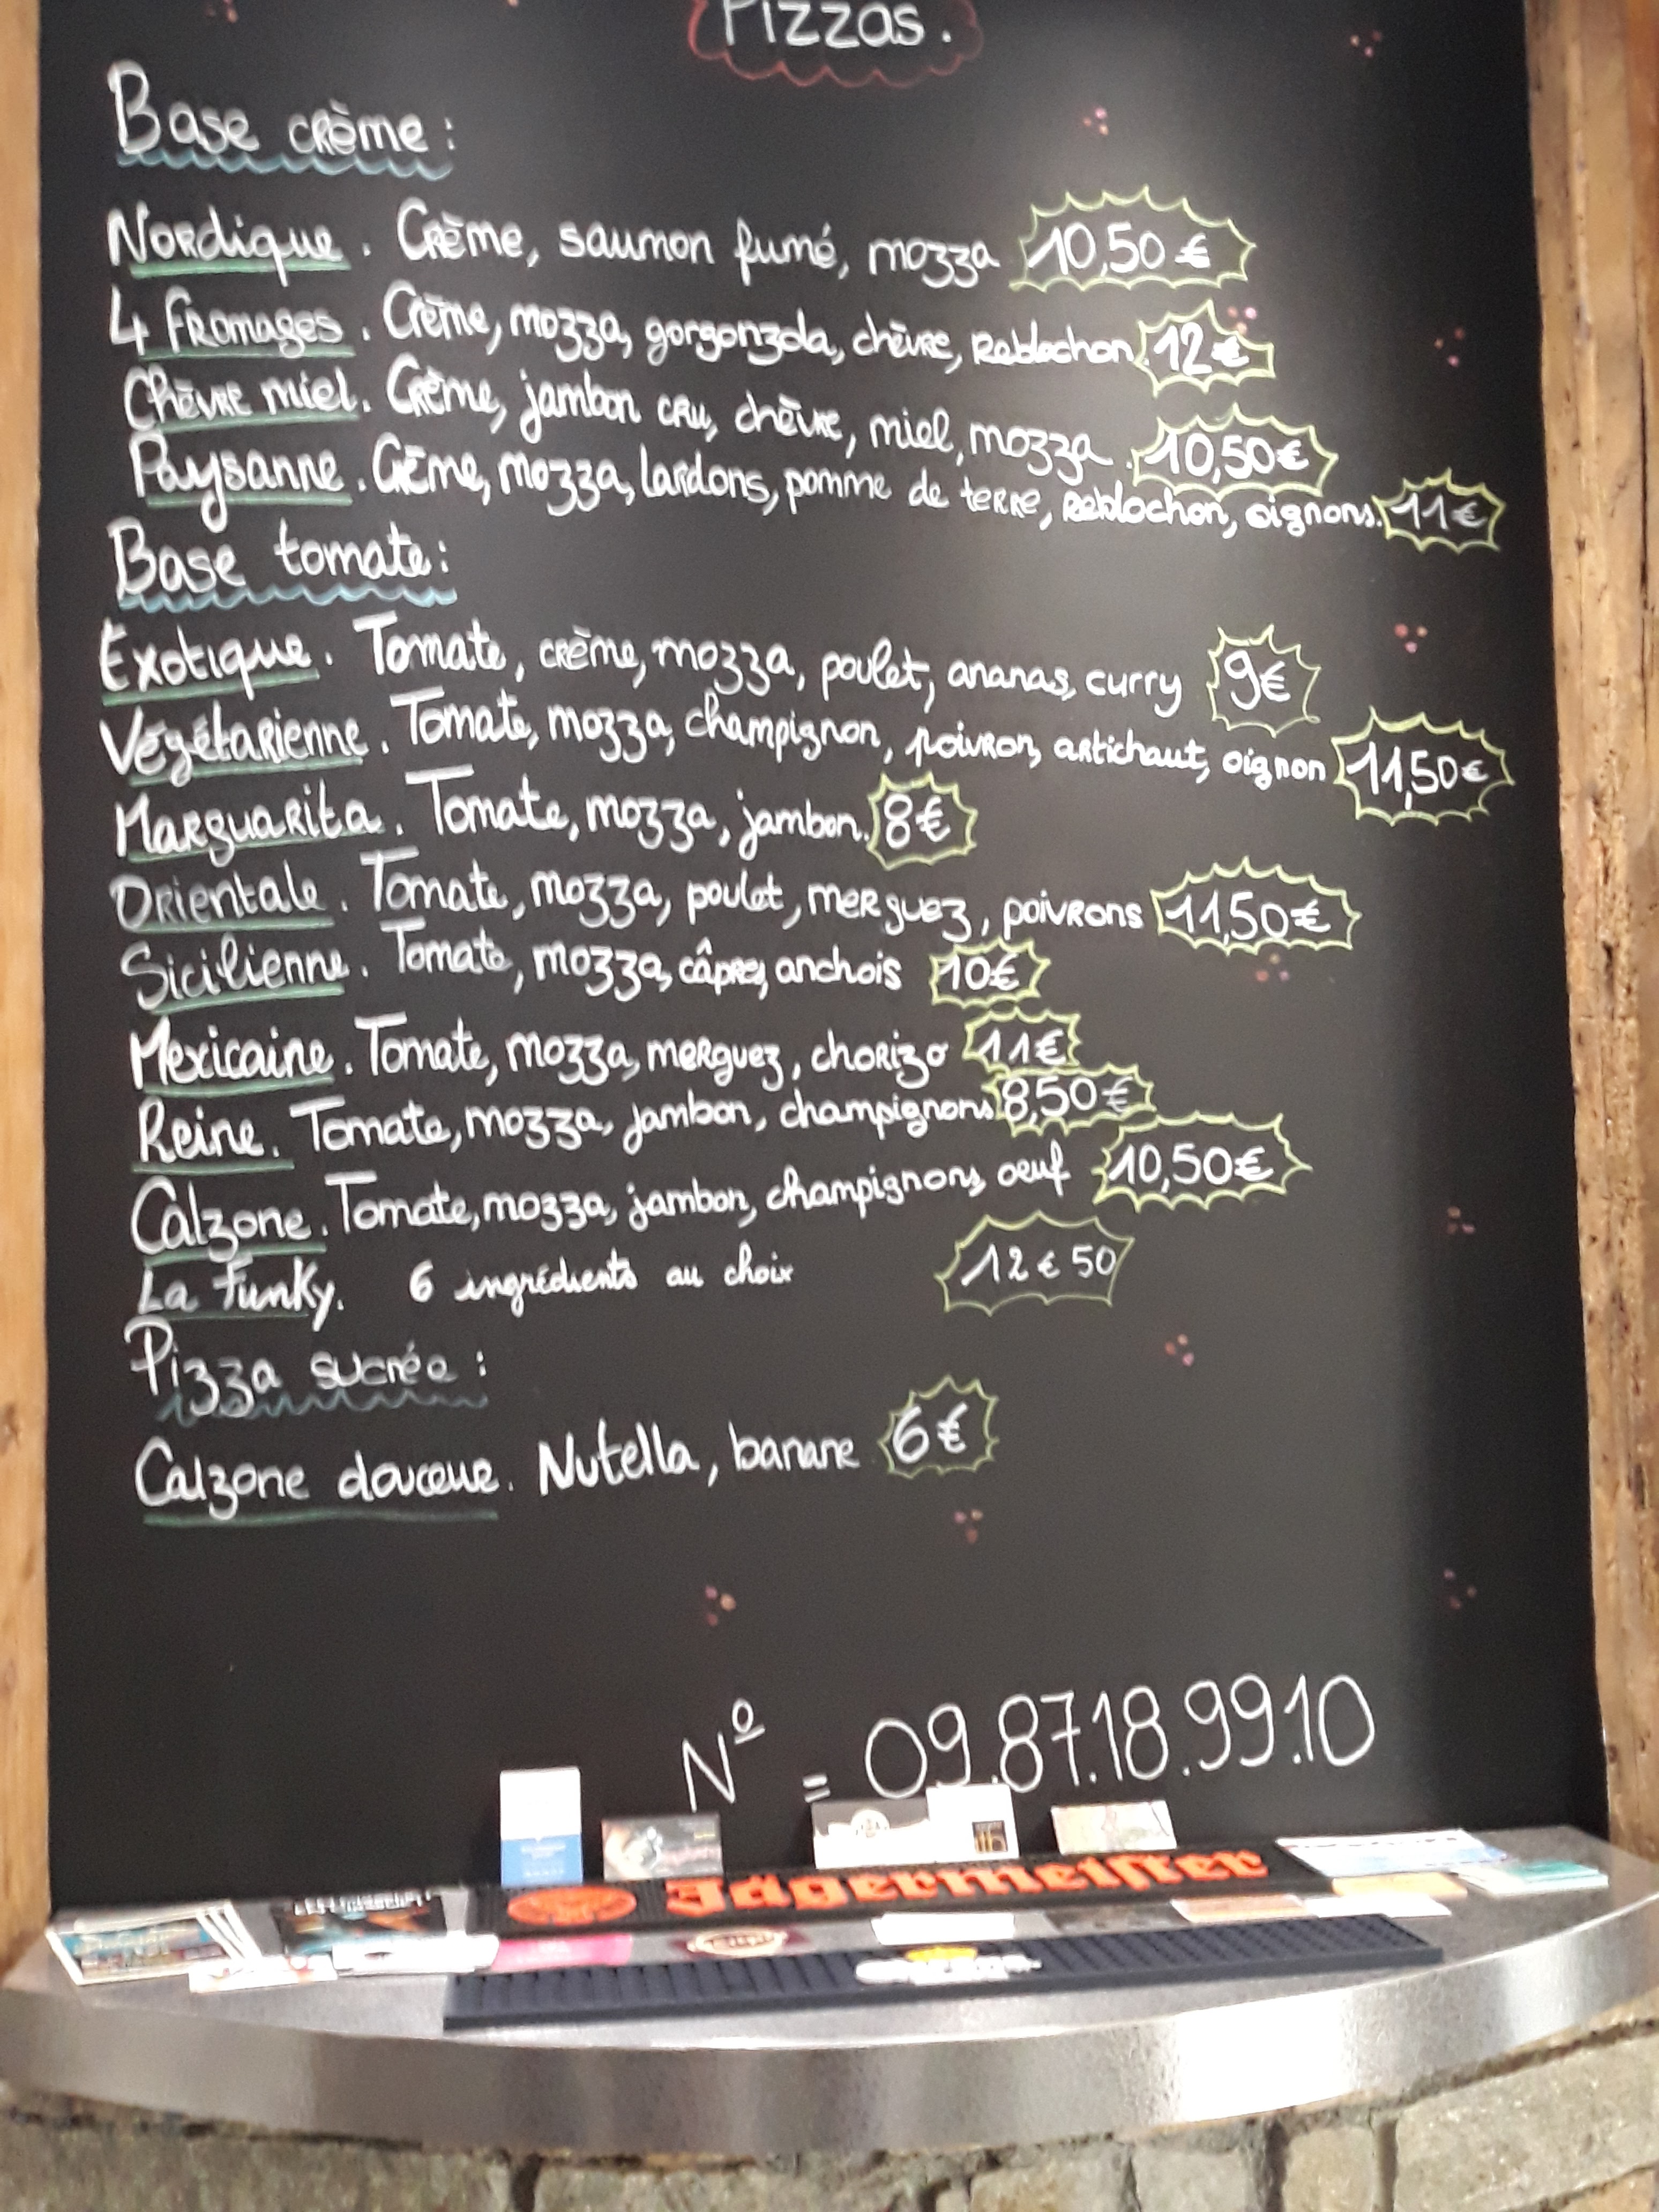 Pizzas.
Base crème :
Nordique. Crème, saumon fumé, mozza 10,50 €
4 fromages. Crème, mozza, gorgonzola, chèvre, Reblochon 12 €
Chèvre miel. Crème, jambon cru, chèvre, miel, mozza. 10,50 €
Paysanne. Crème, mozza, lardons, pomme de terre, Reblochon, oignons. 11 €
Base tomate :
Exotique. Tomate, crème, mozza, poulet, ananas, curry 9 €
Végétarienne. Tomate, mozza, champignon, poivron, artichaut, oignon 11,50 €
Marguarita. Tomate, mozza, jambon. 8 €
Orientale. Tomate, mozza, poulet, merguez, poivrons 11,50 €
Sicilienne. Tomate, mozza, câpres, anchois 10 €
Mexicaine. Tomate, mozza, merguez, chorizo 11 €
Reine. Tomate, mozza, jambon, champignons 8,50 €
Calzone. Tomate, mozza, jambon, champignons, oeuf 10,50 €
La Funky. 6 ingrédients au choix 12 € 50
Pizza sucrée :
Calzone douceur. Nutella, banane 6 €
Nº = 09.87.18.99.10
Jägermeister